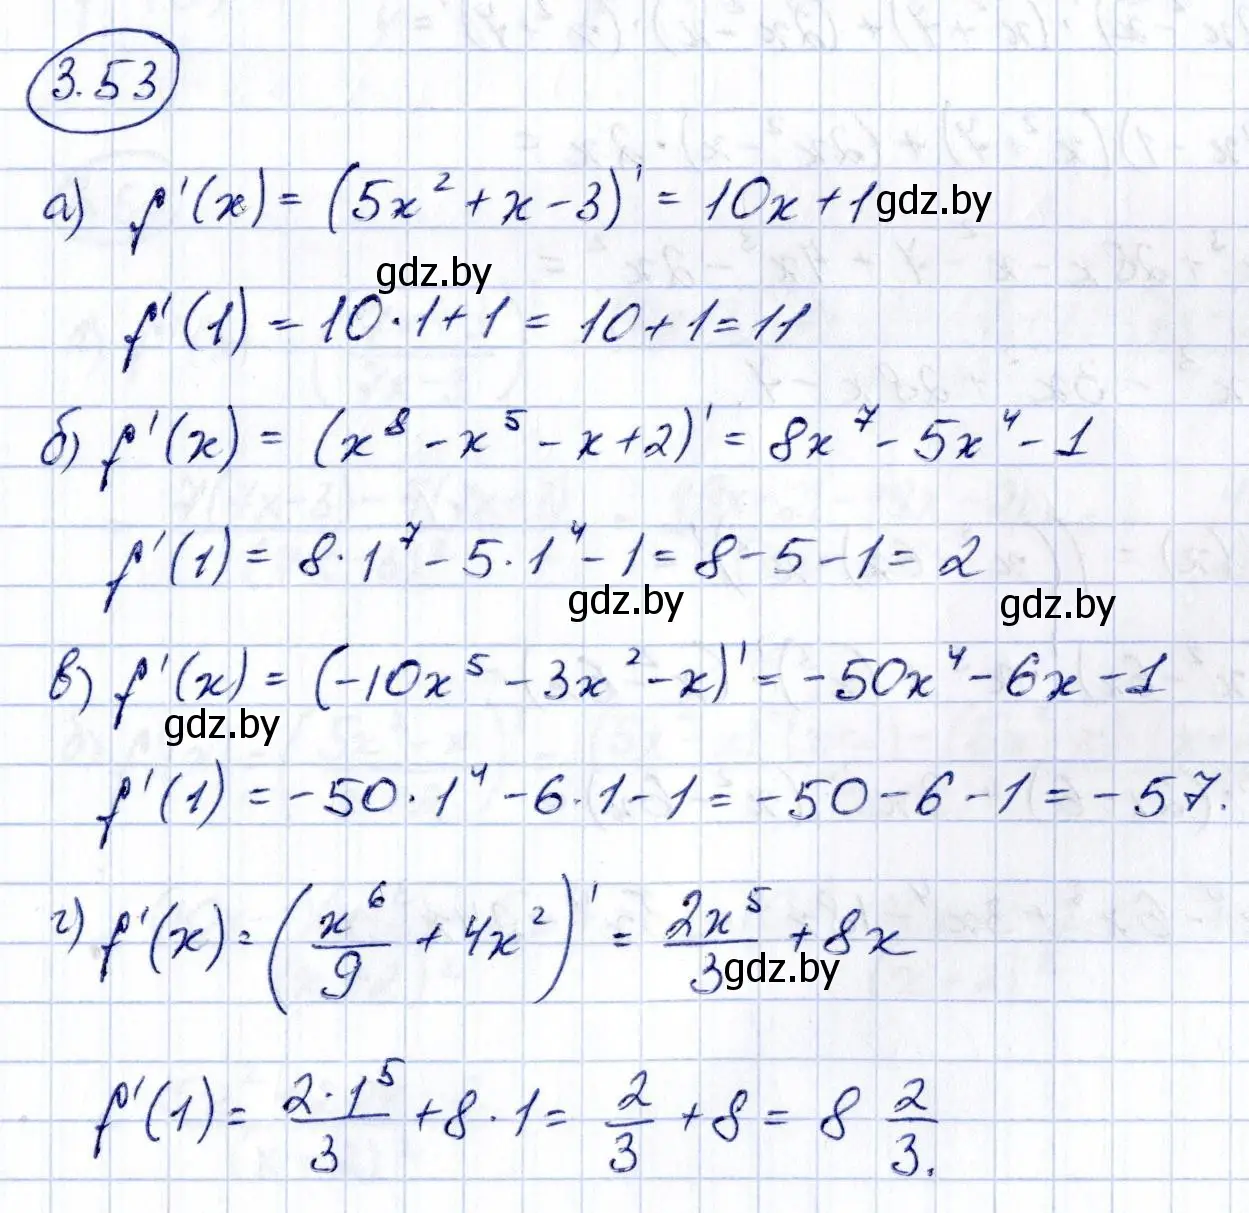 3.53
а) f'(x) = (5x² + x - 3)' = 10x + 1 gdz.by
gdz.by
f'(1) = 10·1+1 = 10+1 = 11
б) f'(x) = (x⁸ - x⁵ - x + 2)' = 8x⁷ - 5x⁴ - 1
f'(1) = 8·1⁷ - 5·1⁴ - 1 = 8 - 5 - 1 = 2
gdz.by gdz.by
в) f'(x) = (-10x⁵ - 3x² - x)' = -50x⁴ - 6x - 1
gdz.by
f'(1) = -50·1⁴ - 6·1 - 1 = -50 - 6 - 1 = -57.
г) f'(x) = (x⁶/9 + 4x²)' = 2x⁵/3 + 8x
gdz.by
f'(1) = 2·1⁵/3 + 8·1 = 2/3 + 8 = 8 2/3.